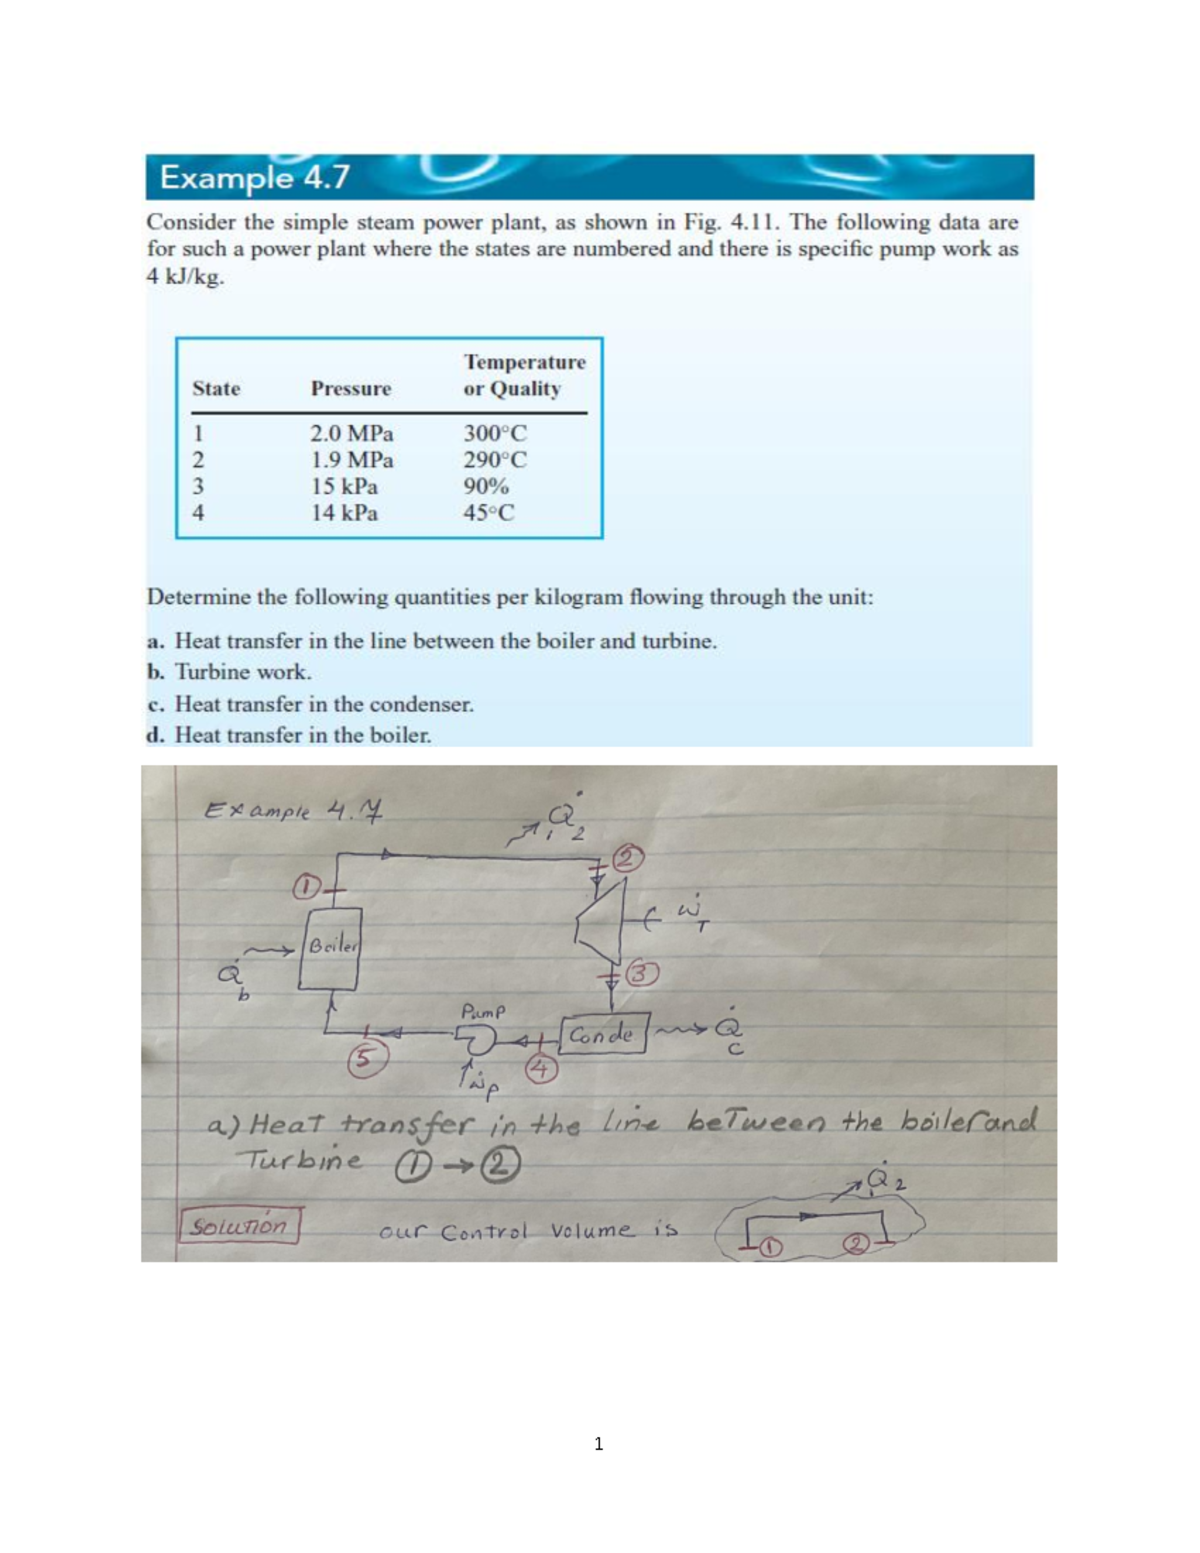 Example 4.7
Consider the simple steam power plant, as shown in Fig. 4.11. The following data are
for such a power plant where the states are numbered and there is specific pump work as
4 kJ/kg.
Temperature
State Pressure or Quality
1 2.0 MPa 300°C
2 1.9 MPa 290°C
3 15 kPa 90%
4 14 kPa 45°C
Determine the following quantities per kilogram flowing through the unit:
a. Heat transfer in the line between the boiler and turbine.
b. Turbine work.
c. Heat transfer in the condenser.
d. Heat transfer in the boiler.
Example 4.7
1Q̇2
2
1
ẆT
Boiler
Q̇b
3
Pump
Conde
Q̇c
5
4
Ẇp
a) Heat transfer in the line between the boiler and
Turbine 1 → 2
1Q̇2
Solution our Control Volume is
1 2
1